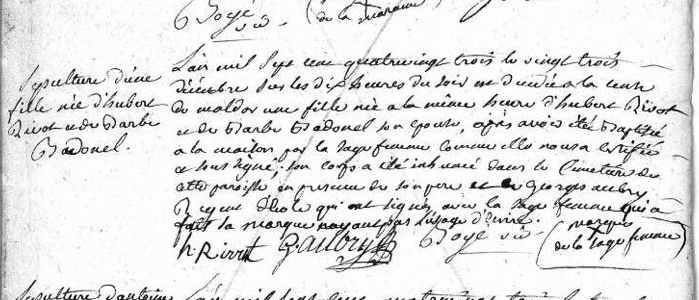 Bogé
vic.
(de la marraine)
Sepulture d'une
fille née d'hubert
Rivot et de Barbe
Badonel.
L'an mil sept cent quatrevingt trois le vingt trois
décembre sur les dix heures du soir est décédée a la cense
de maldor une fille née a la même heure d'hubert Rivot
et de Barbe Badonel son epouse, après avoir été Baptisée
a la maison par la sage femme comme elle nous a certifié
et sous signé; son corps a été inhumé dans le Cimetiere de
cette paroisse en presence de son pere et de georges aubry
Regent d'école qui ont signés avec la sage femme qui a
fait sa marque n'ayant pas l'usage d'écrire.
h Rivot G aubry Bogé vic. (marque
de la sage femme)
Sepulture d'antoine L'an mil sept cent quatre